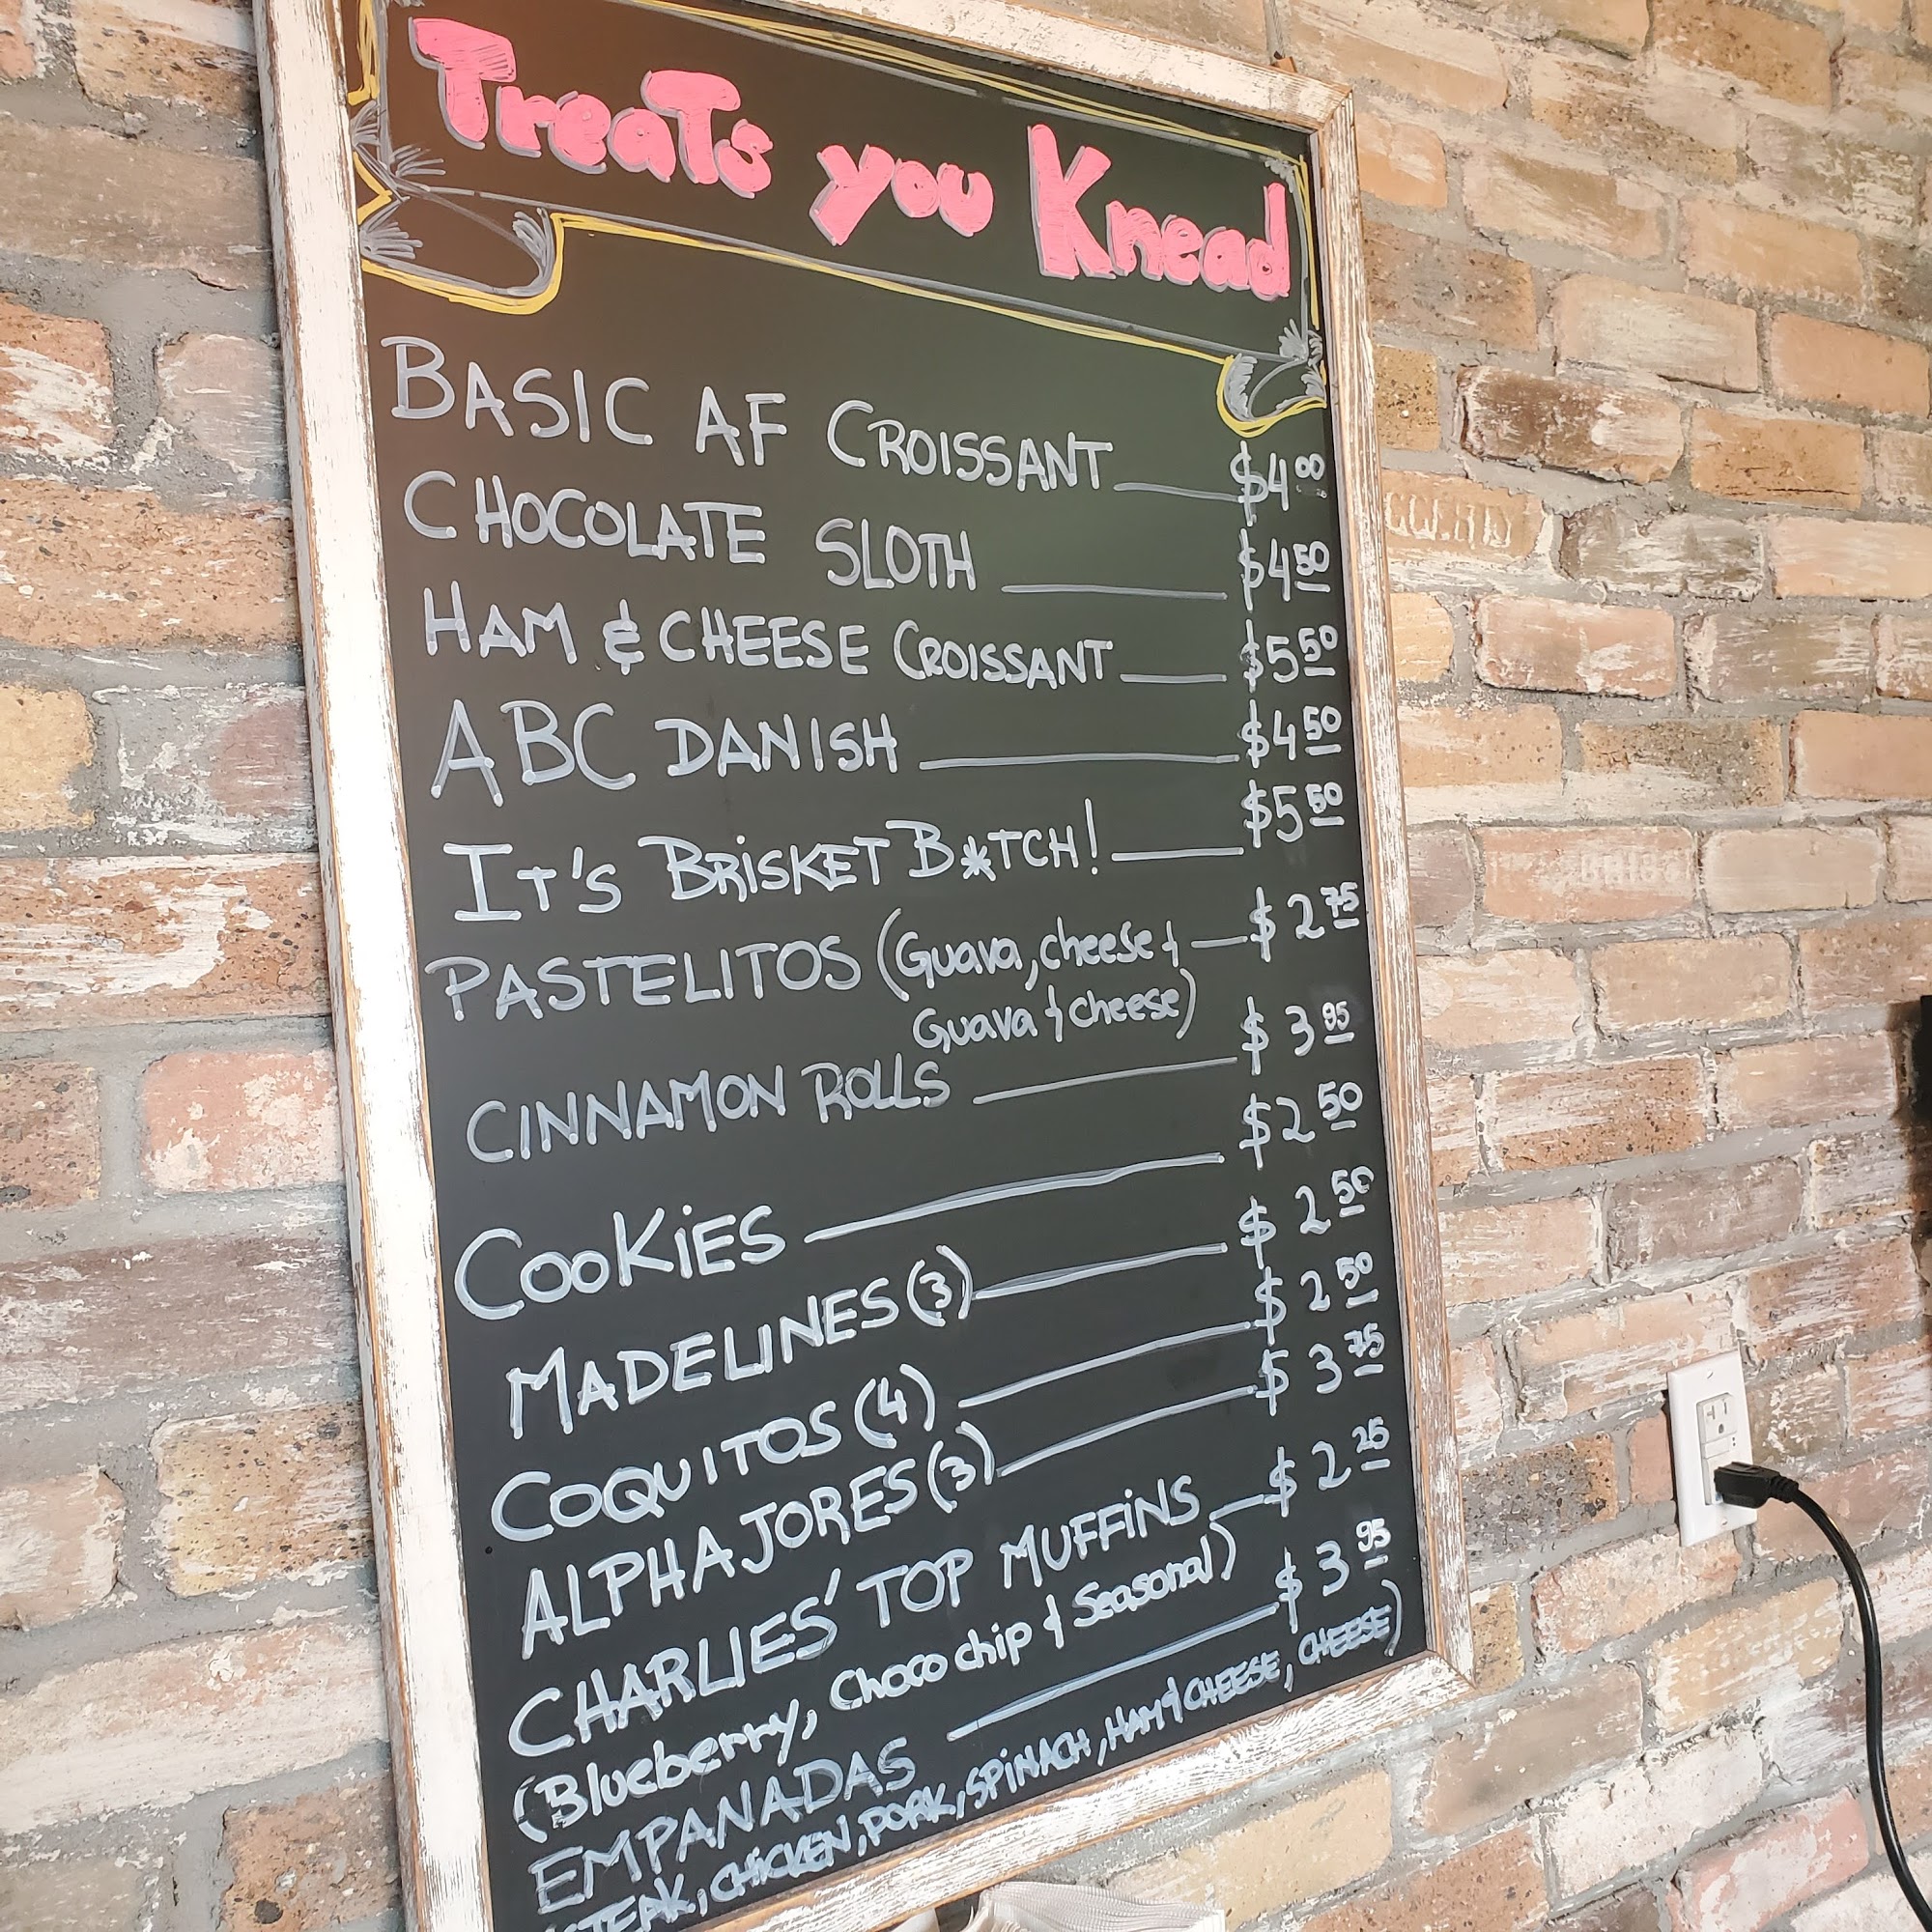 TreaTs you Knead
BASIC AF CROISSANT $4.00
CHOCOLATE SLOTH $4.50
HAM & CHEESE CROISSANT $5.50
ABC DANISH $4.50
IT'S BRISKET B*TCH! $5.50
PASTELITOS (Guava, cheese & $2.75
Guava & cheese)
CINNAMON ROLLS $3.95
COOKiES $2.50
MADELINES (3) $2.50
COQUITOS (4) $2.50
ALPHAJORES (3) $3.75
CHARLIES' TOP MUFFiNS $2.25
(Blueberry, Choco chip & Seasonal)
EMPANADAS $3.95
(STEAK, CHICKEN, PORK, SPINACH, HAM & CHEESE, CHEESE)